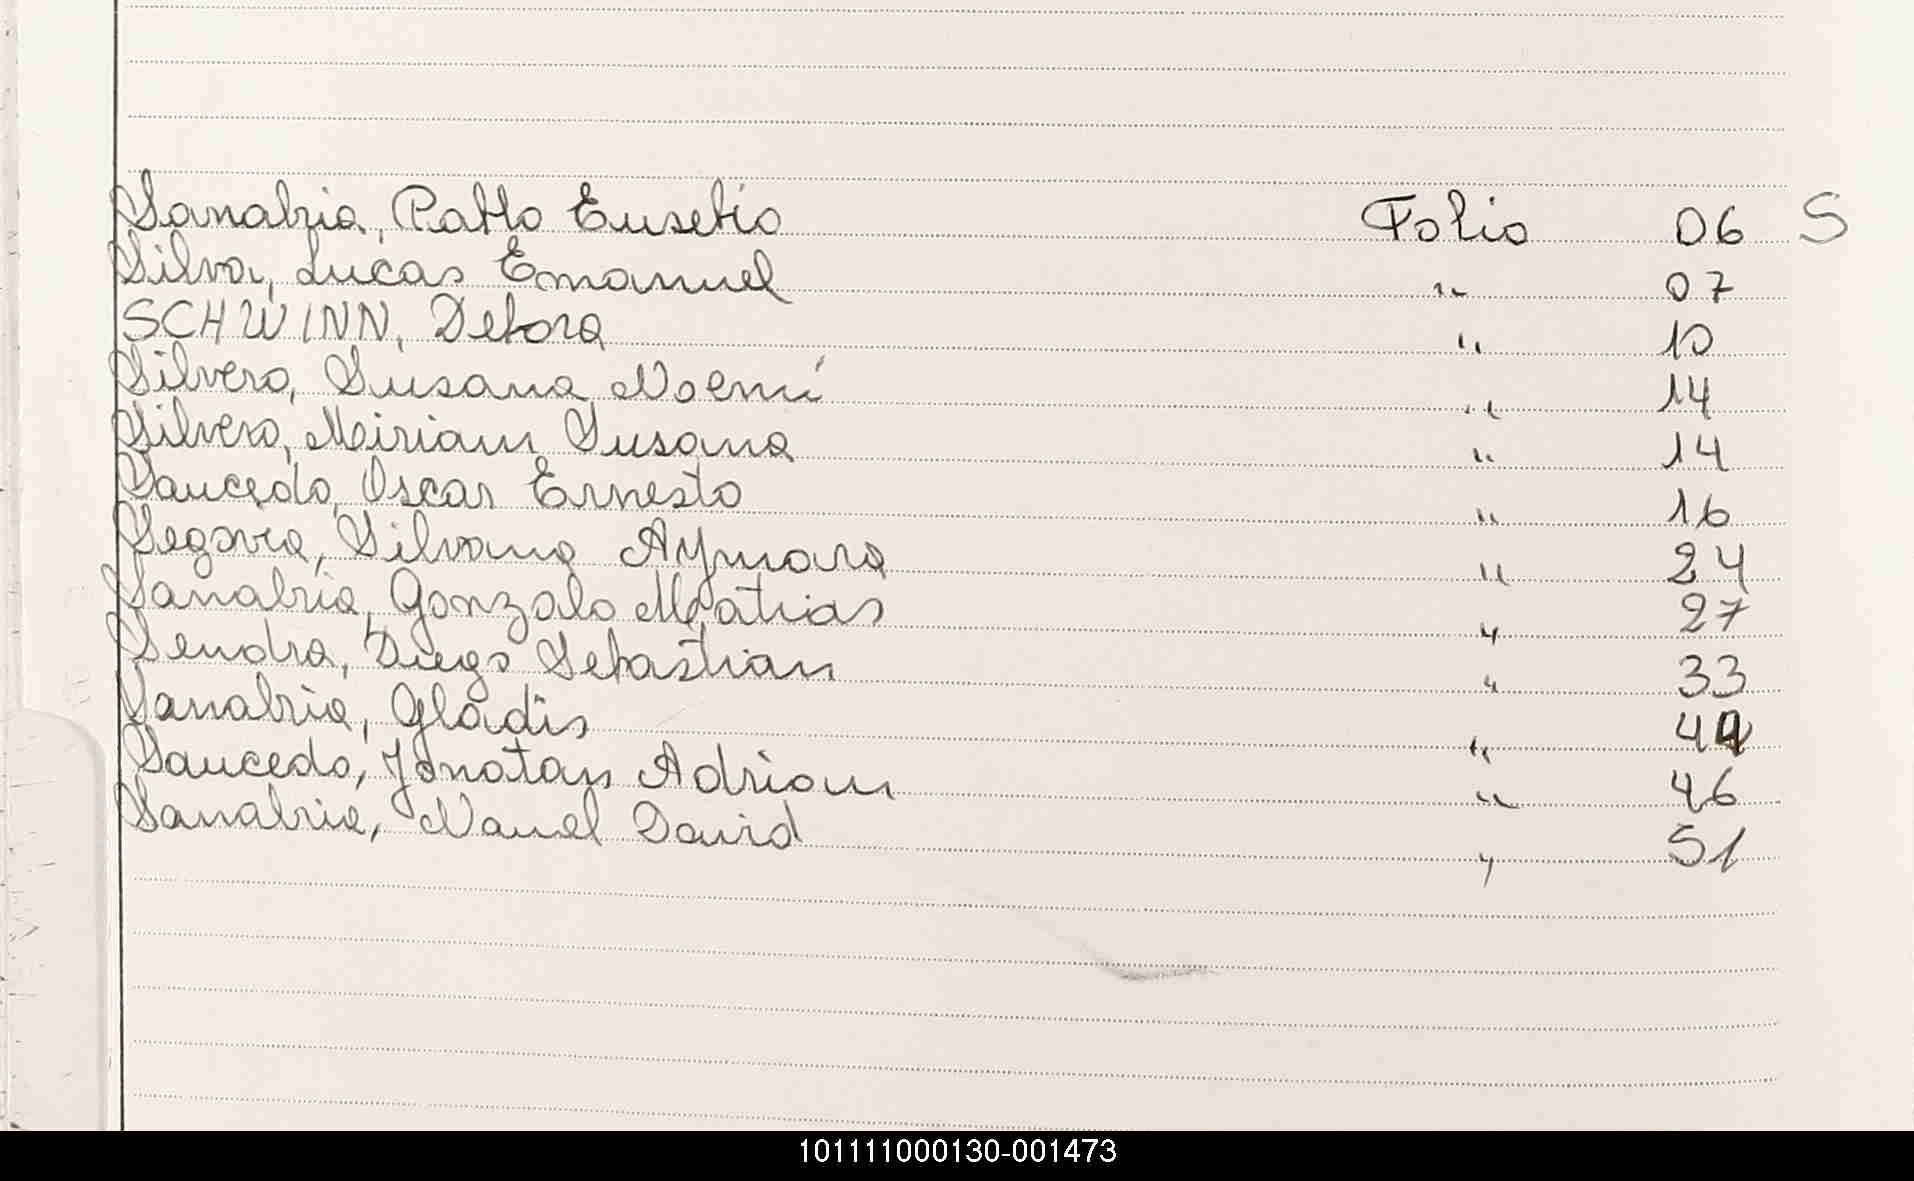 Sanabria, Pablo Eusebio Folio 06 S
Silva, Lucas Emanuel " 07
SCHWINN, Debora " 10
Silvero, Susana Noemí " 14
Silvero, Miriam Susana " 14
Saucedo, Oscar Ernesto " 16
Segovia, Silvana Aymara " 24
Sanabria, Gonzalo Matias " 27
Sendra, Diego Sebastian " 33
Sanabria, Gladis " 44
Saucedo, Jonatan Adrian " 46
Sanabria, Nauel David " 51
101111000130-001473